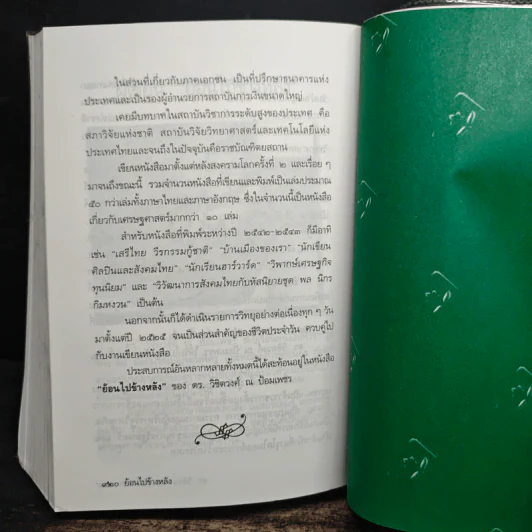 ในส่วนที่เกี่ยวกับภาคเอกชน เป็นที่ปรึกษาธนาคารแห่ง
ประเทศและเป็นรองผู้อำนวยการสถาบันการเงินขนาดใหญ่
เคยมีบทบาทในสถาบันวิชาการระดับสูงของประเทศ คือ
สภาวิจัยแห่งชาติ สถาบันวิจัยวิทยาศาสตร์และเทคโนโลยีแห่ง
ประเทศไทยและจนถึงในปัจจุบันคือราชบัณฑิตยสถาน
เขียนหนังสือมาตั้งแต่หลังสงครามโลกครั้งที่ ๒ และเรื่อย ๆ
มาจนถึงขณะนี้ รวมจำนวนหนังสือที่เขียนและพิมพ์เป็นเล่มประมาณ
๕๐ กว่าเล่มทั้งภาษาไทยและภาษาอังกฤษ ซึ่งในจำนวนนี้เป็นหนังสือ
เกี่ยวกับเศรษฐศาสตร์มากกว่า ๑๐ เล่ม
สำหรับหนังสือที่พิมพ์ระหว่างปี ๒๕๔๒-๒๕๔๓ ก็มีอาทิ
เช่น "เสรีไทย วีรกรรมกู้ชาติ" "บ้านเมืองของเรา" "นักเขียน
ศิลปินและสังคมไทย" "นักเรียนฮาร์วาร์ด" "วิพากษ์เศรษฐกิจ
ทุนนิยม" และ "วิวัฒนาการสังคมไทยกับหัสนิยายชุด พล นิกร
กิมหงวน" เป็นต้น
นอกจากนั้นก็ได้ดำเนินรายการวิทยุอย่างต่อเนื่องทุก ๆ วัน
มาตั้งแต่ปี ๒๕๒๕ จนเป็นส่วนสำคัญของชีวิตประจำวัน ควบคู่ไป
กับงานเขียนหนังสือ
ประสบการณ์อันหลากหลายทั้งหมดนี้ได้สะท้อนอยู่ในหนังสือ
"ย้อนไปข้างหลัง" ของ ดร. วิชิตวงศ์ ณ ป้อมเพชร
ย้อนไปข้างหลัง